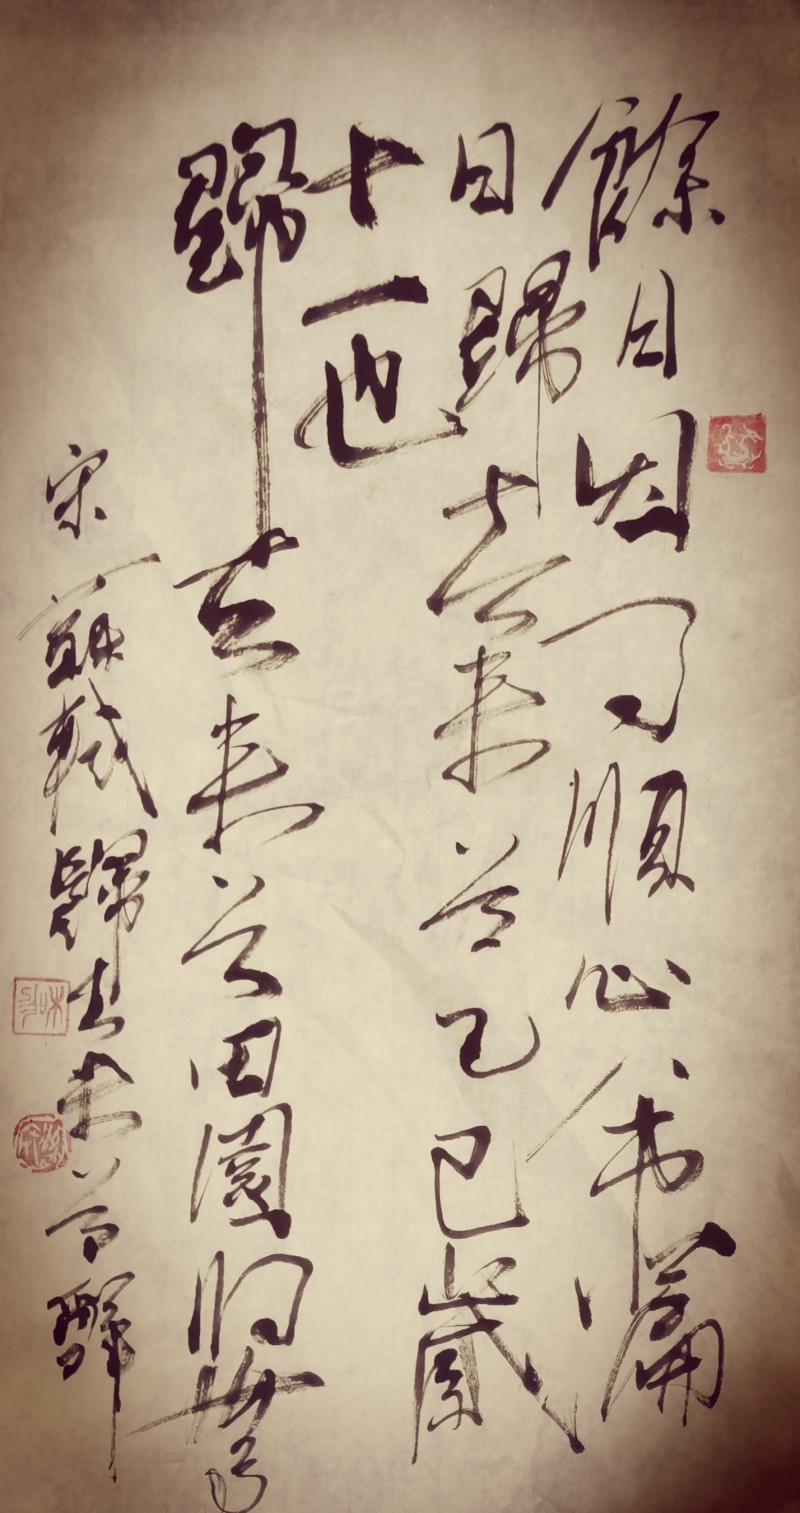 餘日因事順心命篇
曰歸去來兮乙巳歲
十一月也
歸去來兮田園將蕪
宋蘇軾歸去來兮辭